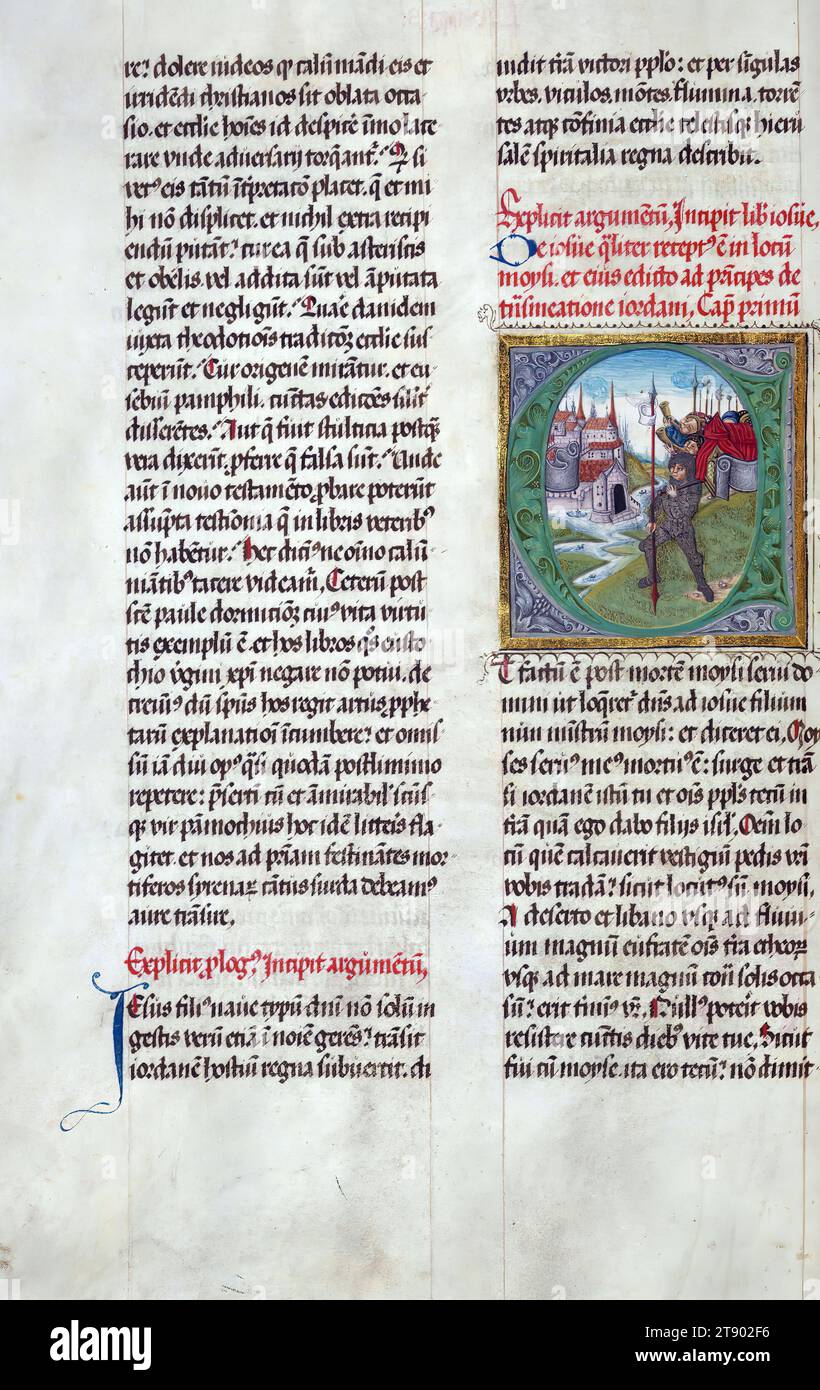 re? dolere iudeos qͥ calūniādi eis et
irridēdi christianos sit oblata occa
sio. et ecclīe hoīes id despicē īmo lace
rare vnde adversarij torqāntᷣ. Qᷓ si
vetꝰ eis tātū īt͛pretacō placet. q̄ et mi
hi nō displicet. et nichil extra recipi
endū putāt? cur ea q̄ sub asteriscis
et obelis. vel addita sūt vel āputata
legūt et negligūt. Quare danielem
iuxta theodotiōis trāslacōꝫ ecclīe sus
ceperūt. Cur origenem mirantur. et eu
sebiū pamphili. cūctas ediciōes silīt͛
disserētes. Aut q̄ fuit stulticia postqᷓ͛
vera dixerīt. ꝓferre q̄ falsa sūt. Vnde
aūt ī novo testamēto ꝓbare poterūt
assūpta testiōnia q̄ in libris veteribꝰ
nō habētur. Hec dicimꝰ ne oīno calū
niātibꝰ tacere videamꝰ. Ceterū post
scē paule dormiciōꝫ cuiꝰ vita virtu
tis exemplū ē. et hos libros qͦs eusto
chio v͛gini xp̄i negare nō potui. de
crevimꝰ dū spūs hos regit artus ꝓphe
tarū explanationī īcumbere? et omis
sū iam diu opꝰ qͣsi quodā postliminio
repetere: p̄sertī cū et āmirabilꝭ scūsꝗ
qꝫ vir pāmochius hoc idē litteīs fla
gitet. et nos ad pr̄iam festinātes mor
tiferos syrenaꝝ cātus surda debeamꝰ
aure trāsire.
Explicit ꝓlogꝰ, Incipit argumētū,
Iesus filiꝰ nave typū dn̄i nō solū in
gestis verū etiā ī noīe gerēs? trāsit
iordanē hostiū regna subvertit. di
uidit t͛rā victori pplo: et per sīgulas
vrbes. viculos. mōtes. flumina. torrē
tes atqꝫ cōfinia ecclīe celestisqꝫ hieru
salem̄ spiritalia regna describit.
Explicit argumētū, Incipit lib͛ iosue,
De iosue qᷓliter receptꝰ ē in locū
moysi. et eius edicto ad prīcipes de
trāsmeatione iordani, Capᷓ primū
Et factū ē post mortem moysi servi do
mini ut loqueret͛ dn̄s ad iosue filium
nun mīstrū moysi: et diceret ei, Moy
ses servꝰ meꝰ mortuꝰ ē: surge et trāsi
si iordanē istū tu et oīs ppl̄s tecū in
t͛rā quā ego dabo filijs isrl̄, Oēm lo
cū quē calcaverit vestigiū pedis vr̄i
vobis tradā? sicut locutꝰ sū moysi,
A deserto et libano vsqꝫ ad fluui
um magnū eufratē oīs t͛ra etheoꝝ
vsqꝫ ad mare magnū cōtra solis occa
sū? erit t͛minꝰ vr̄, Nullꝰ poterit vobis
resistere cūctis diebꝰ vite tue, Sicut
fui cū moyse. ita ero tecū? nō dimit
alamy
Image ID: 2T902F6
www.alamy.com